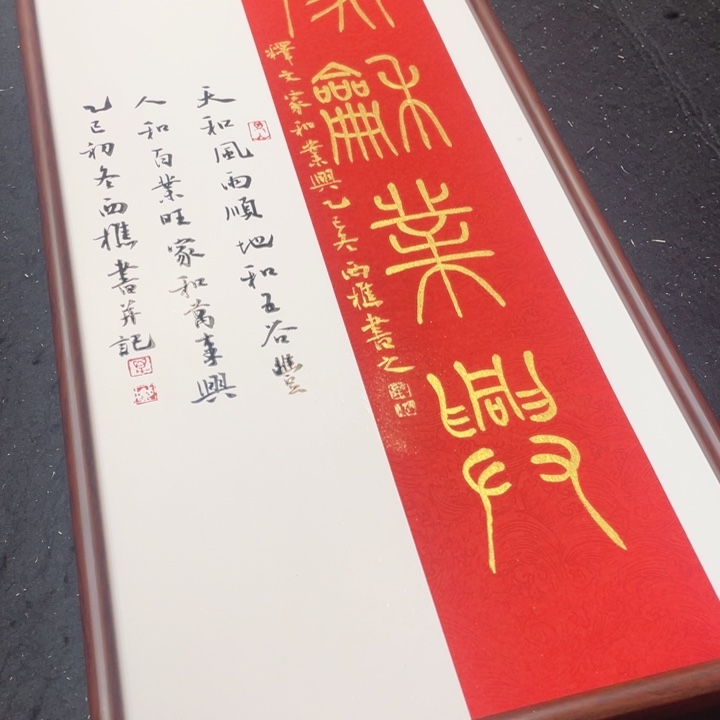 龢業興
釋文家和業興乙巳冬西樵書之
天和風雨順地和五谷豐
人和百業旺家和萬事興
乙巳初冬西樵書并記